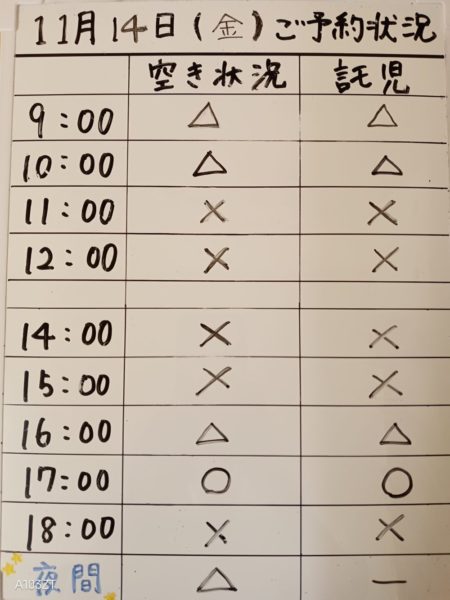 11月14日(金)ご予約状況
空き状況 託児
9:00 △ △
10:00 △ △
11:00 × ×
12:00 × ×
14:00 × ×
15:00 × ×
16:00 △ △
17:00 ○ ○
18:00 × ×
夜間 △ ー
A103ZT